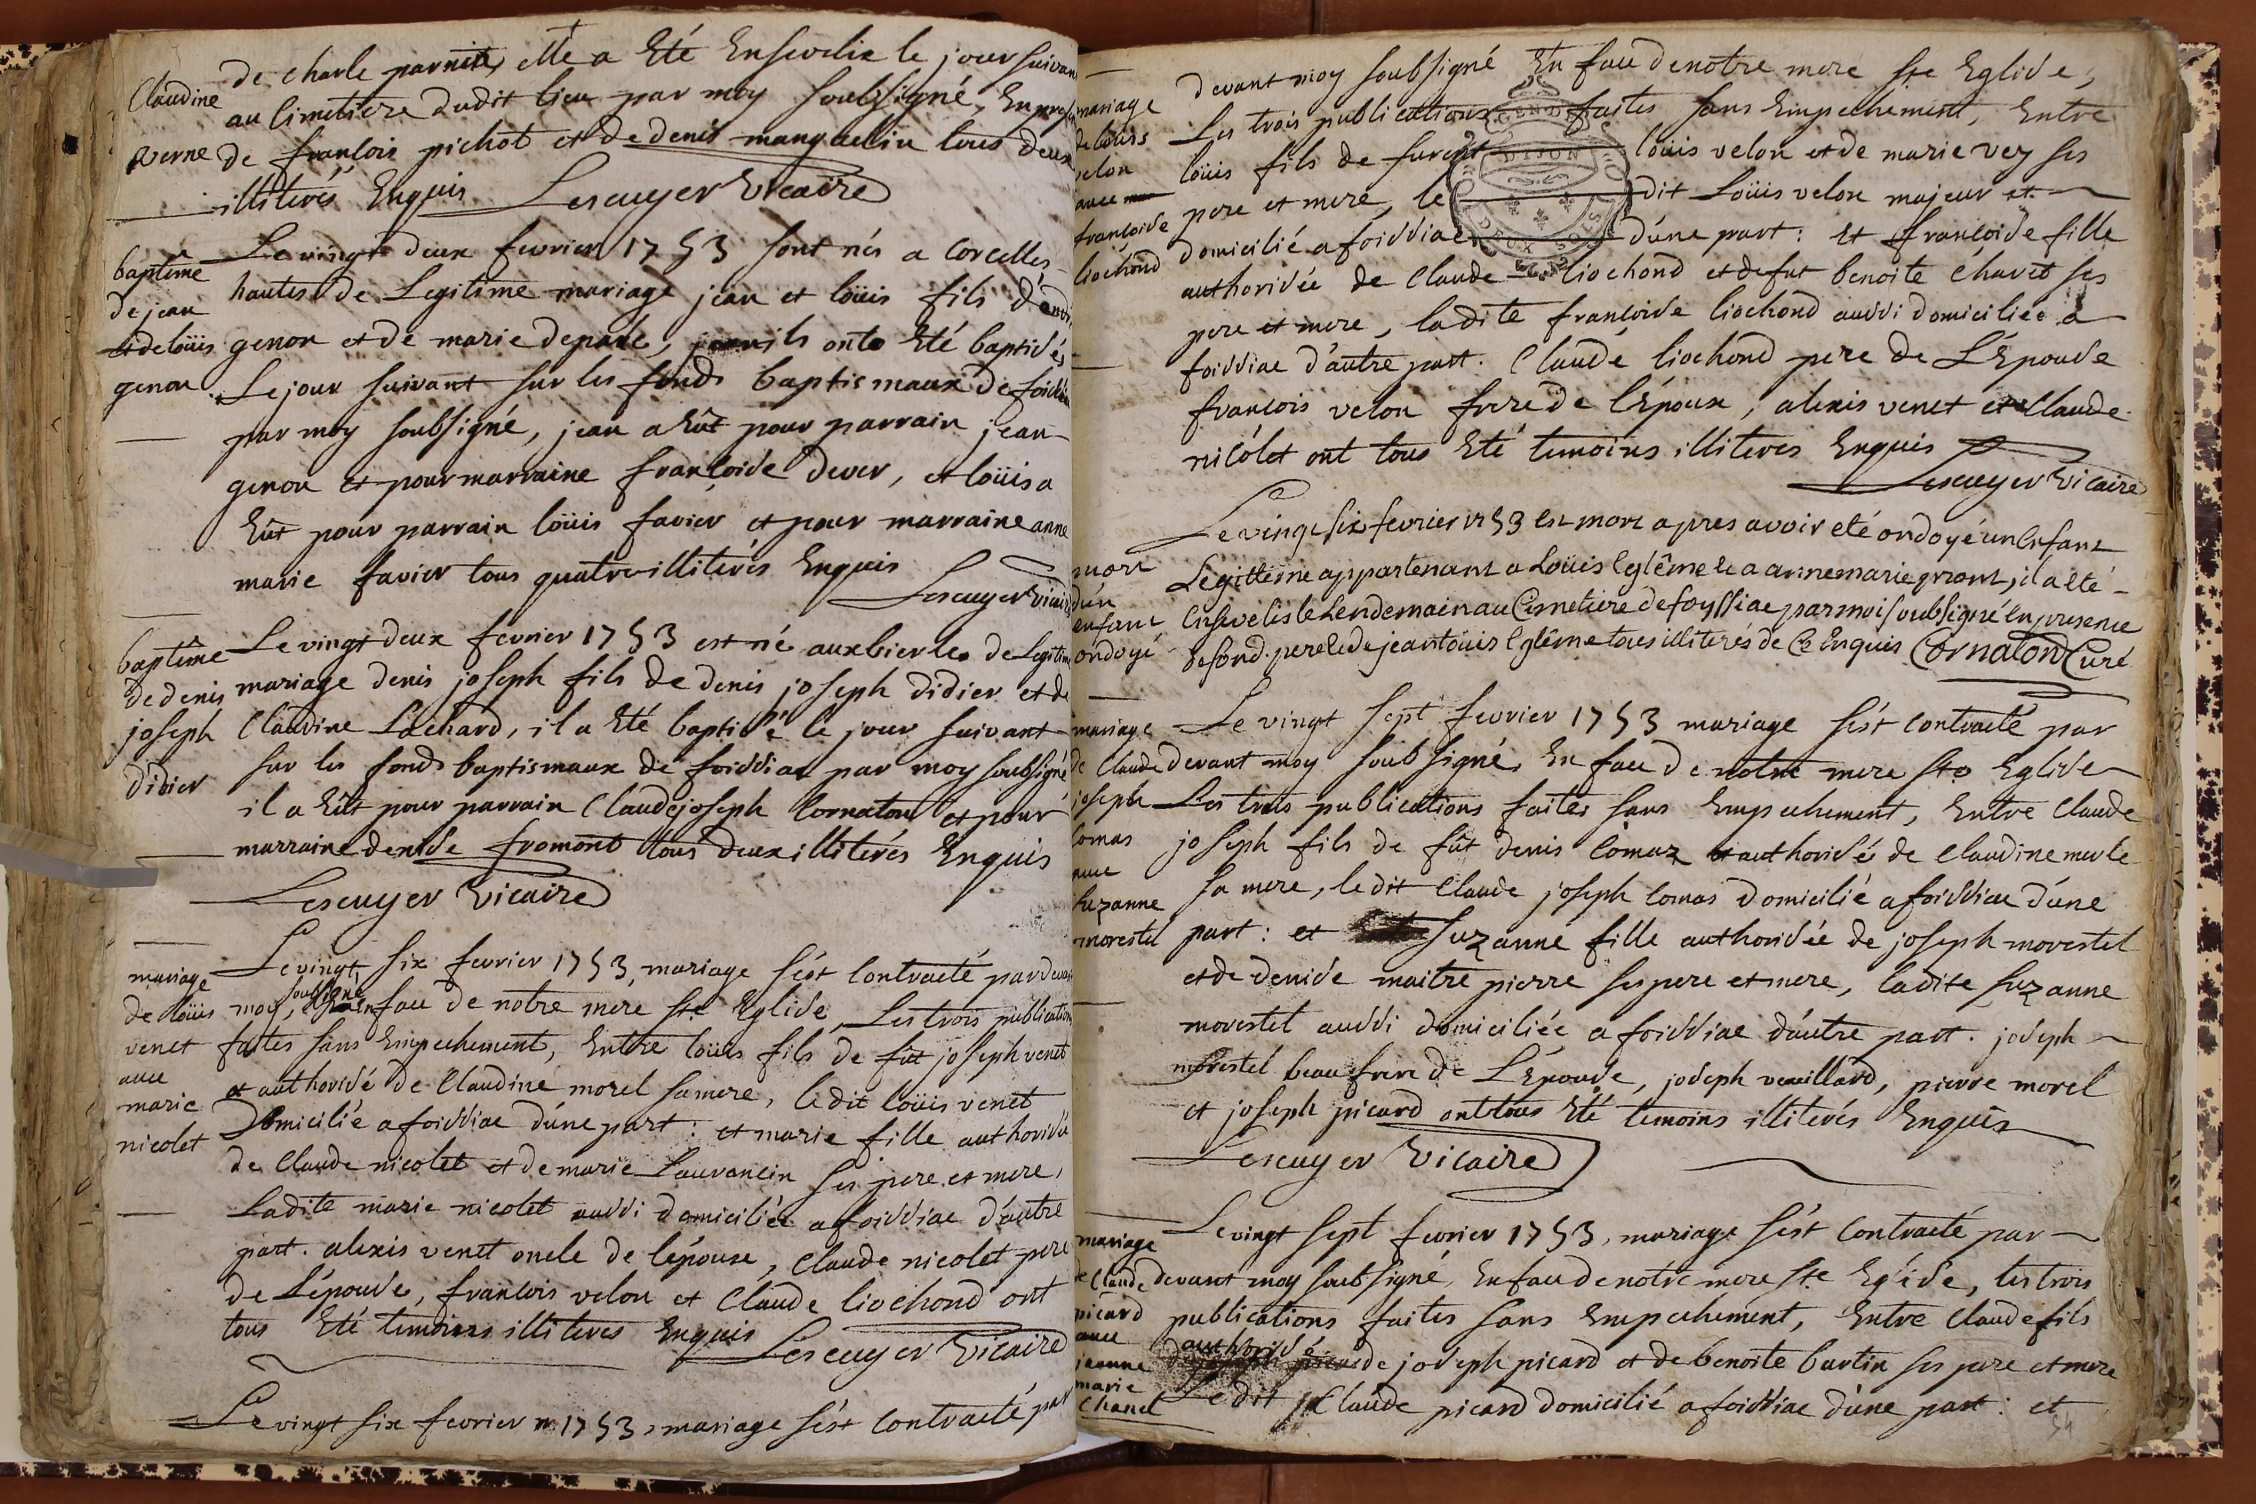 Claudine
verne
de charle parnin, elle a Eté Ensevelie le jour suivan
au cimetiere dudit lieu par moy soubsigné, En presen
de françois pichot et de denis manguelin tous deux
illiterés Enquis Lescuyer Vicaire
baptême
de jean
et de loüis
genon
Le vingt deux fevrier 1753 sont nés a Corcelles
hautes de Legitime mariage jean et loüis fils d'andré
genon et de marie depade, ils ont Eté baptisés
Le jour suivant sur les fonds baptismaux de foissia
par moy soubsigné, jean a Eût pour parrain jean
genon et pour marraine françoise dever, et loüis a
Eût pour parrain loüis favier et pour marraine anne
marie favier tous quatre illiterés Enquis
Lescuyer Vicaire
baptême
de denis
joseph
didier
Le vingt deux fevrier 1753 est né aux bierles de Legitime
mariage denis joseph fils de denis joseph didier et de
Claudine Lochard, il a Eté baptisé le jour suivant
sur les fonds baptismaux de foissiae par moy soubsigné
il a Eût pour parrain Claude joseph Cornaton et pour
marraine denise fromont tous deux illiterés Enquis
Lescuyer Vicaire
mariage
de loüis
venet
avec
marie
nicolet
Le vingt six fevrier 1753, mariage s'ést Contracté par devant
moy, soubsigné En face de notre mere Ste Eglise, Les trois publications
faites sans Empechement, Entre loüis fils de fût joseph venet
et authorisé de Claudine morel sa mere, le dit loüis venet
Domicilié a foissiae d'une part : et marie fille authorisée
de Claude nicolet et de marie Lauvancin ses pere et mere,
Ladite marie nicolet aussi domiciliée a foissiae d'autre
part. alexis venet oncle de l'époux, Claude nicolet pere
de L'épouse, françois velon et Claude liochond ont
tous Eté temoins illiterés Enquis Lescuyer Vicaire
Le vingt six fevrier 1753, mariage s'ést Contracté par
mariage
de loüis
velon
avec
françoise
liochond
devant moy soubsigné En face de notre mere Ste Eglise,
Les trois publications faites sans Empechement, Entre
loüis fils de loüis velon et de marie vey ses
pere et mere, le dit Loüis velon majeur et
domicilié a foissiae d'une part : Et françoise fille
authorisée de Claude liochond et de fut benoite Charet ses
pere et mere, ladite françoise liochond aussi domiciliée a
foissiae d'autre part. Claude liochond pere de L'Epouse
françois velon frere de l'époux, alexis venet et Claude
nicolet ont tous Eté temoins illiteres Enquis
Lescuyer Vicaire
GEN DIJON
DEUX SOLS
mort
d'un
enfant
ondoyé
Le vingt six fevrier 1753 est mort apres avoir eté ondoyé un Enfant
Legitime appartenant a Loüis Eglême et a anne marie, il a eté
Ensevelis le Lendemain au Cimetiere de foyssiae par moi soubsigné En presence
de son d. pere et de jean Loüis Eglême tous illiterés de Ce Enquis Cornaton Curé
mariage
de Claude
joseph
Comas
avec
Suzanne
morestel
Le vingt sept fevrier 1753 mariage s'ést Contracté par
devant moy soubsigné, En face de notre mere Ste Eglise
Les trois publications faites sans Empechement, Entre Claude
joseph fils de fût denis Comaz et authorisé de Claudine merle
sa mere, le dit Claude joseph Comas domicilié a foissiae d'une
part : et Suzanne fille authorisée de joseph morestel
et de denise maitre pierre ses pere et mere, ladite Suzanne
morestel aussi domiciliée a foissiae d'autre part. joseph
morestel beau frere de L'Epouse, joseph veuillard, pierre morel
et joseph picard ont tous Eté temoins illiterés Enquis
Lescuyer Vicaire
mariage
de Claude
picard
avec
jeanne
marie
Chanel
Le vingt sept fevrier 1753, mariage s'ést Contracté par
devant moy soubsigné, En face de notre mere Ste Eglise, les trois
publications faites sans Empechement, Entre Claude fils
authorisé de joseph picard et de benoite burtin ses pere et mere
Le dit Claude picard domicilié a foissiae d'une part : et
54